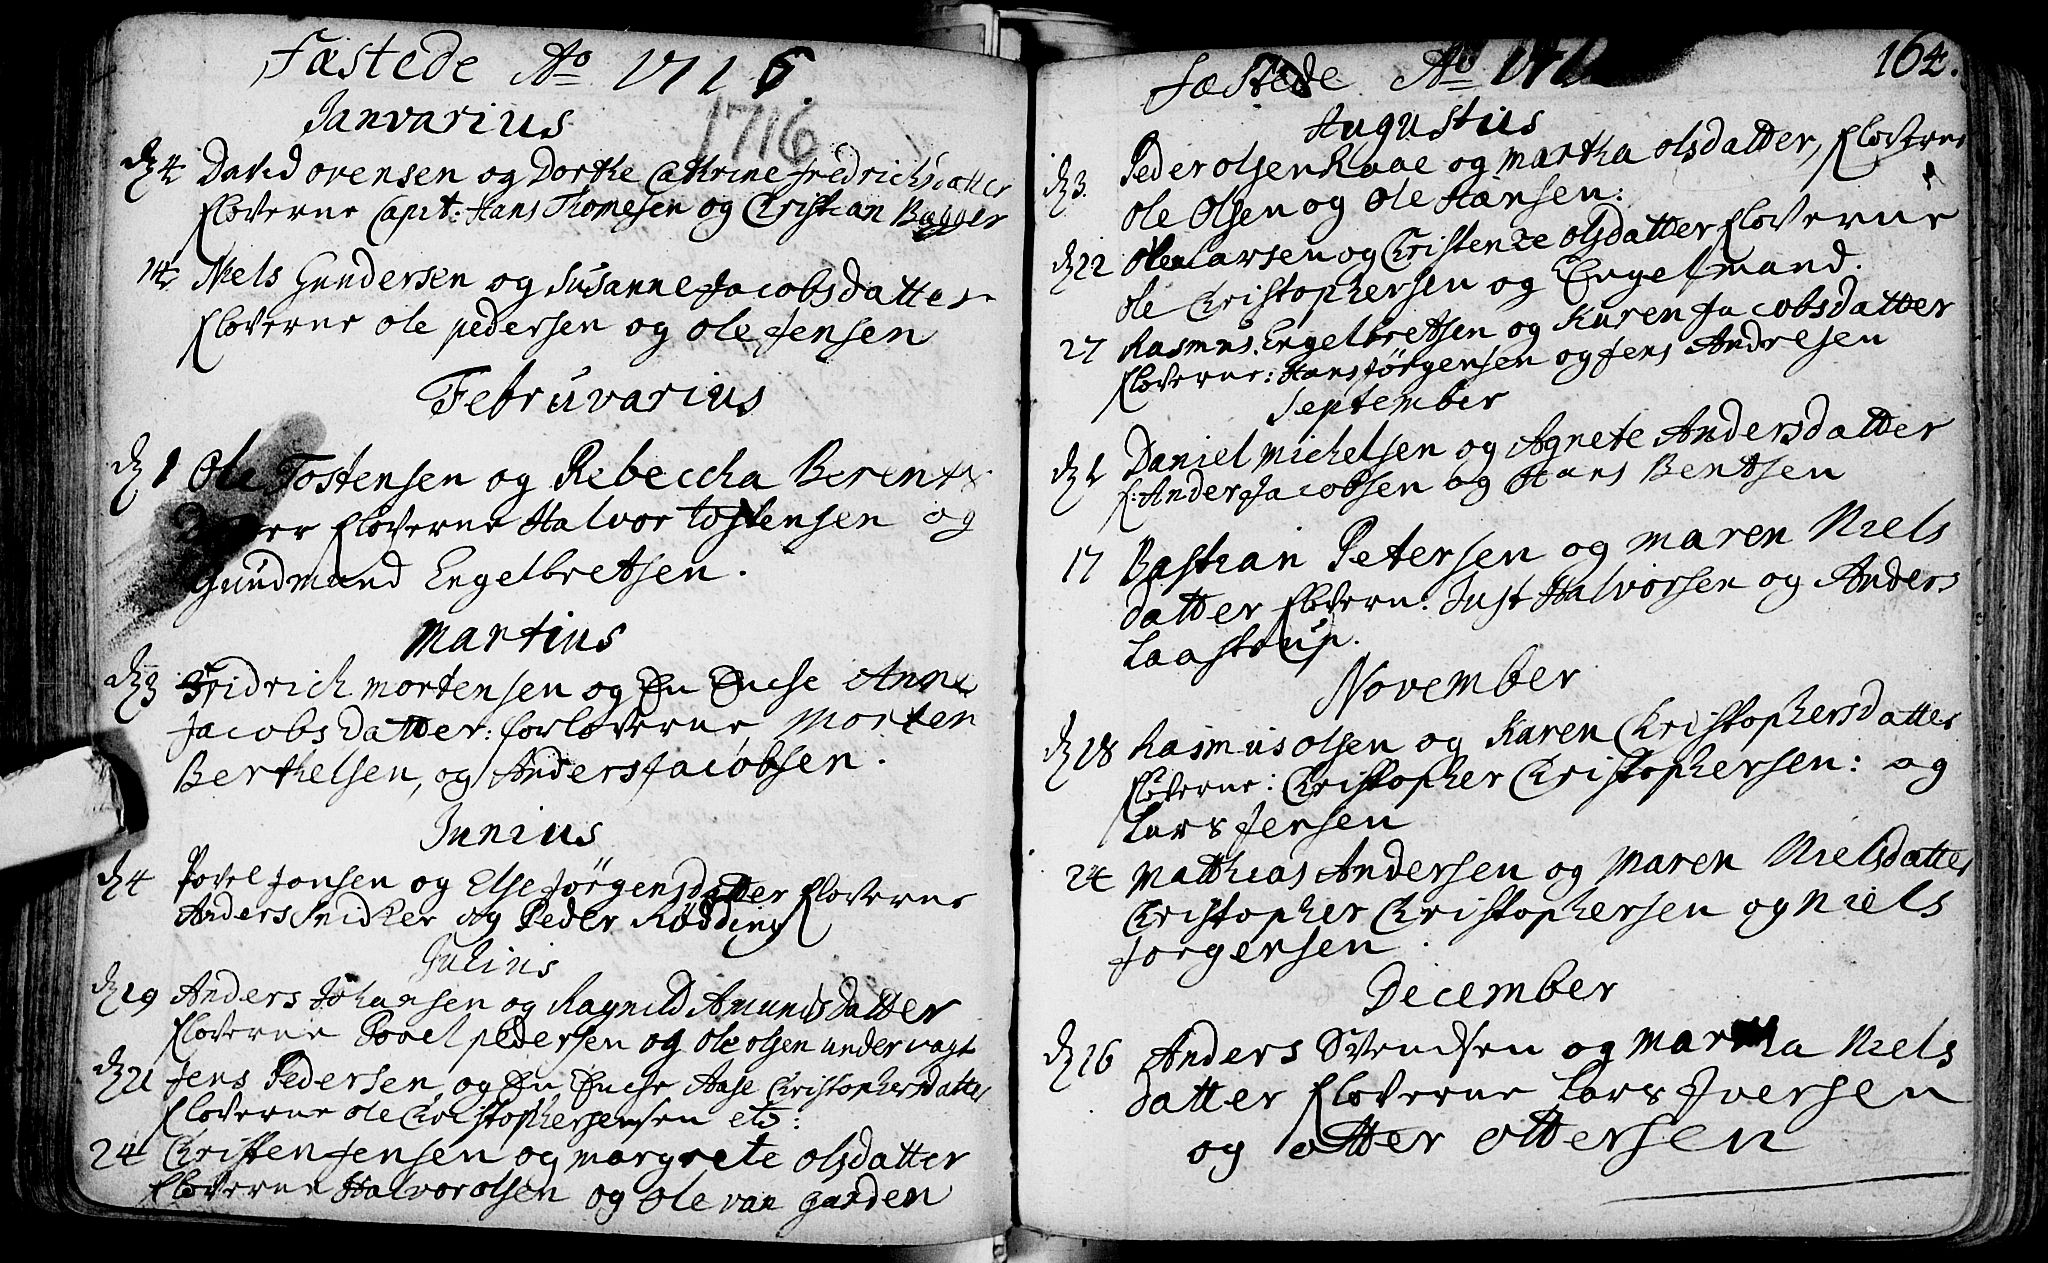 Fæstede Ao 1716.
1716
Ianvarius
d 4 David ovensen og Dorthe Cathrine fredrichsdatter
Floverne Capit: Hans Thomesen og Christian Bugger
14 Niels Gundersen og Susanne Jacobsdatter
Floverne ole pedersen og ole Jensen
Februvarius
d 1 Ole Tostensen og Rebeccha Berents
Floverne Halvor tostensen og
Gundmand Engelbretsen.
Martius
d 3 Fridrich mortensen og En Encke Anne
Jacobsdatter: forloverne, Morten
Berthelsen, og Anders Jacobsen.
Iunius
d 4 Povel Jonsen og Else Jörgensdatter Floverne
Anders Snidker og Peder Rödding
Julius
d 19 Anders Johansen og Ragnild Amundsdatter
Floverne Povel pedersen og ole olsen under vagt
d 21 Jens Pedersen, og En Encke Aase Christophersdatter
Floverne ole Christophersensen etc:
24 Christen Jensen og margrete olsdatter
Floverne Halvor olsen og ole van garden
164.
Fæstede Ao
Augustius
d 3. Peder olsen Raae og martha olsdatter, Floverne
ole olsen og ole Hansen:
d 22 Ole Larsen og Christenze olsdatter Floverne
ole Christophersen og Engelmand.
27 Rasmus Engelbretsen og Karen Jacobsdatter
Floverne: Hans Jörgensen og Jens Andresen
September
d 1 Daniel Michelsen og Agnete Andersdatter
f: Anders Jacobsen og Hans Bentsen
17 Bastian Petersen og maren Niels
datter Flovern: Just Halvorsen og Anders
Laastrup.
November
d 18 Rasmus olsen og Karen Christophersdatter
Floverne: Christopher Christophersen: og
Lars Jensen
24 Matthias Andersen og Maren Nielsdatter
Christopher Christophersen og Niels
Jorgensen.
December
d 16 Anders Svendsen og Martha Niels
datter Floverne Lars Iversen
og otter ottersen